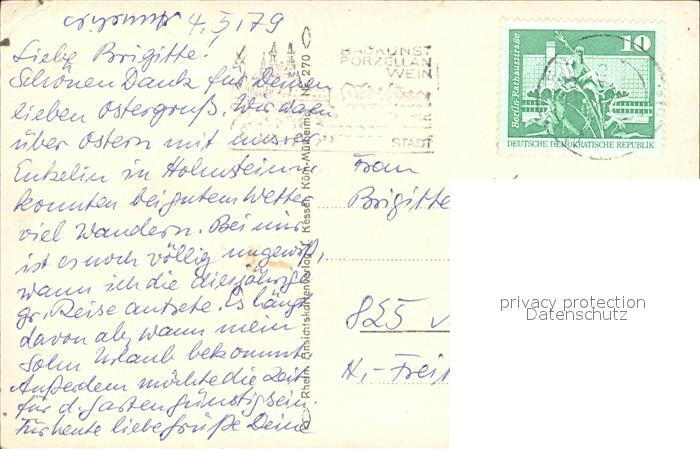 4.5.79
Liebe Brigitte!
Schönen Dank für Deinen
lieben Ostergruß. Wir waren
über Ostern mit unserer
Enkelin in Hohnstein u.
konnten bei gutem Wetter
viel Wandern. Bei mir
ist es noch völlig ungewiß,
wann ich die diesjährige
gr. Reise antrete. Es hängt
davon ab, wann mein
Sohn Urlaub bekommt.
Außerdem möchte die Zeit
für d. Garten günstig sein.
Für heute liebe Grüße Deine
Rhein. Ansichtskartenverlag J. Kessel, Köln-Mülheim Nr. 270
BAUKUNST
PORZELLAN
WEIN
STADT
Berlin-Rathausstraße
10
DEUTSCHE DEMOKRATISCHE REPUBLIK
Frau
Brigitte
825
H.-Frei
privacy protection
Datenschutz